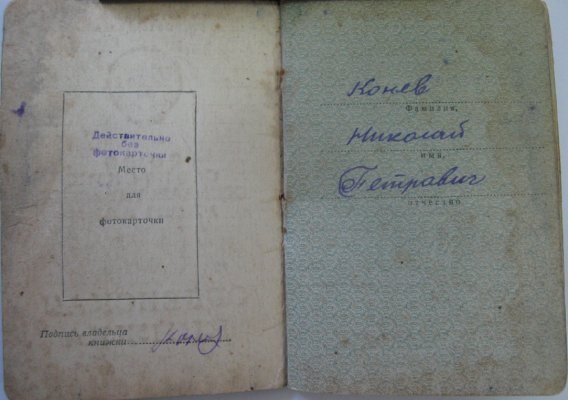 Действительно
без
фотокарточки
Место
для
фотокарточки
Подпись владельца
книжки
Конев
Фамилия,
Николай
имя,
Петрович
отчество